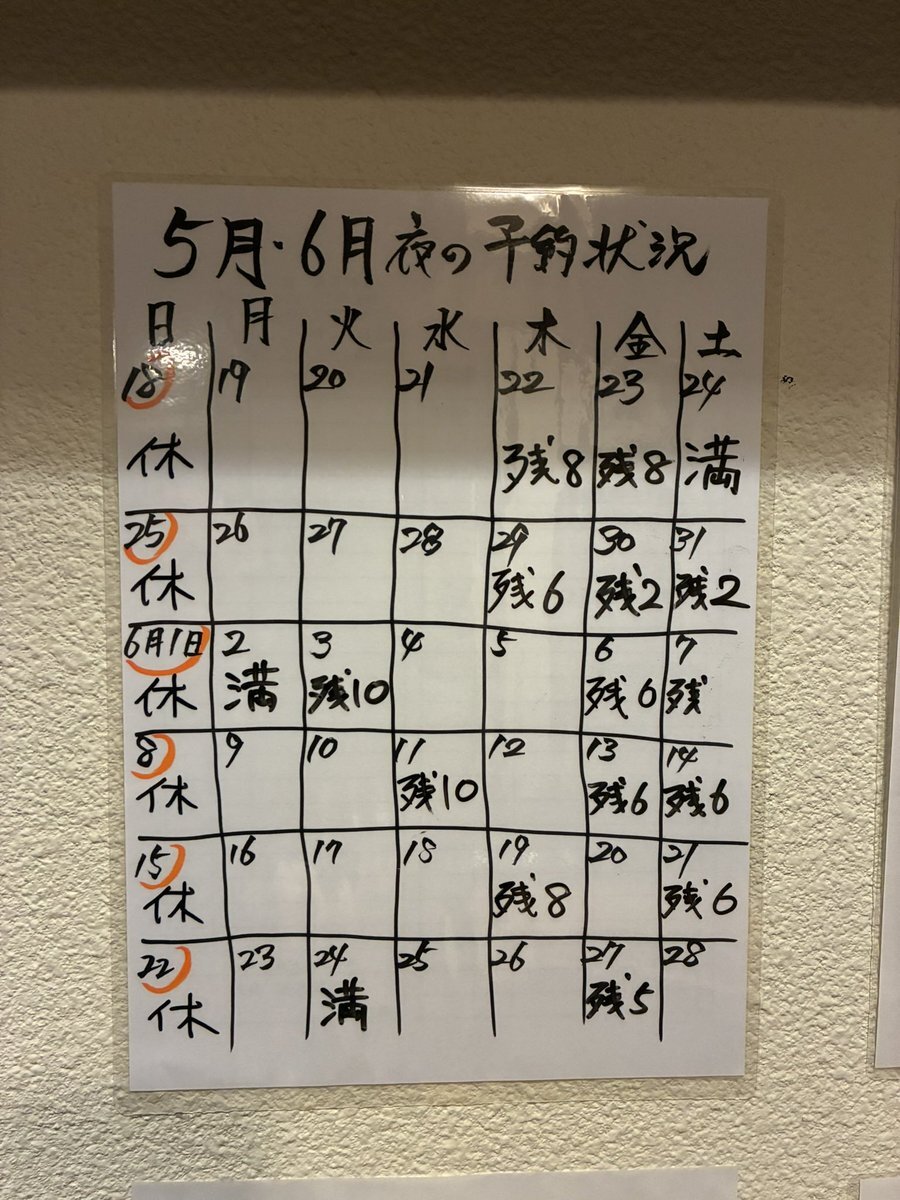 5月・6月夜の予約状況
日 月 火 水 木 金 土
18 19 20 21 22 23 24
休 残8 残8 満
25 26 27 28 29 30 31
休 残6 残2 残2
6月1日 2 3 4 5 6 7
休 満 残10 残6 残
8 9 10 11 12 13 14
休 残10 残6 残6
15 16 17 18 19 20 21
休 残8 残6
22 23 24 25 26 27 28
休 満 残5